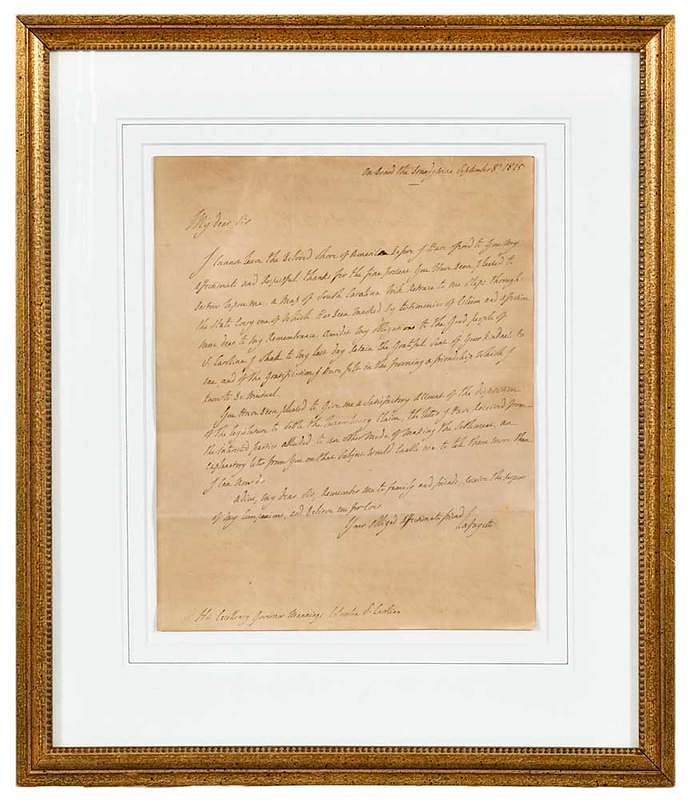 On board the Brandywine September 8h 1825
My dear Sir
I Cannot leave the Beloved Shore of America Before I Have offered to You My
affectionate and Respectful thanks for the fine present You Have Been pleased to
Bestow Upon me, a Map of South Carolina Will Retrace to me Steps through
the State Every one of Which Has Been marked by testimonies of Esteem and affection
ever dear to My Remembrance. Amidst My obligations to the Good people of
S. Carolina I Shall to my last day Retain the Grateful Sense of Your Kindness to
me and of the Gratification I Have felt in the forming a friendship Which I
know to Be Mutual.
You Have Been pleased to Give me a Satisfactory Account of the disposition
of the Legislature to Settle the Luxembourg Claim, the letters I Have Received from
the interested parties alluded to an other Mode of Making the Settlement, an
explanatory letter from You on that Subject Would Enable me to tell them more than
I Can Now do.
Adieu, my dear Sir, Remember me to family and friends, Receive the respects
of my Companions, and Believe me for Ever
Your obliged affectionate friend
Lafayette
His Excellency Governor Manning, Columbia S. Carolina